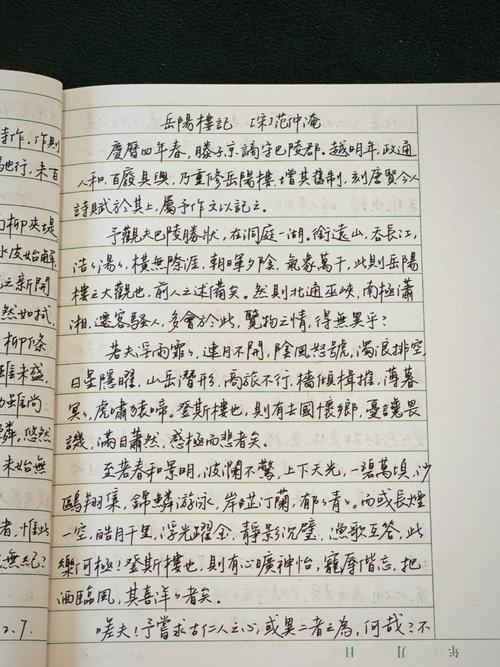 岳陽樓記 [宋]范仲淹
慶曆四年春，滕子京謫守巴陵郡。越明年，政通
人和，百廢具興，乃重修岳陽樓，增其舊制，刻唐賢今人
詩賦於其上，屬予作文以記之。
予觀夫巴陵勝狀，在洞庭一湖。銜遠山，吞長江，
浩〻湯〻，橫無際涯，朝暉夕陰，氣象萬千，此則岳陽
樓之大觀也，前人之述備矣。然則北通巫峽，南極瀟
湘，遷客騷人，多會於此，覽物之情，得無異乎？
若夫淫雨霏〻，連月不開，陰風怒號，濁浪排空，
日星隱曜，山岳潛形，商旅不行，檣傾楫摧，薄暮
冥〻，虎嘯猿啼。登斯樓也，則有去國懷鄉，憂讒畏
譏，滿目蕭然，感極而悲者矣。
至若春和景明，波瀾不驚，上下天光，一碧萬頃，沙
鷗翔集，錦鱗游泳，岸芷汀蘭，郁〻青〻。而或長煙
一空，皓月千里，浮光躍金，靜影沉璧，漁歌互答，此
樂何極！登斯樓也，則有心曠神怡，寵辱偕忘，把
酒臨風，其喜洋〻者矣。
嗟夫！予嘗求古仁人之心，或異二者之為，何哉？不
年 月 日
诗作，作則
地行，未百
柳夾堤
冰皮始解
之新開
然如拭
柳條
雖未盛
雖尚
鱗，悠然
未始無
者，惟此
無紀？
2.7.